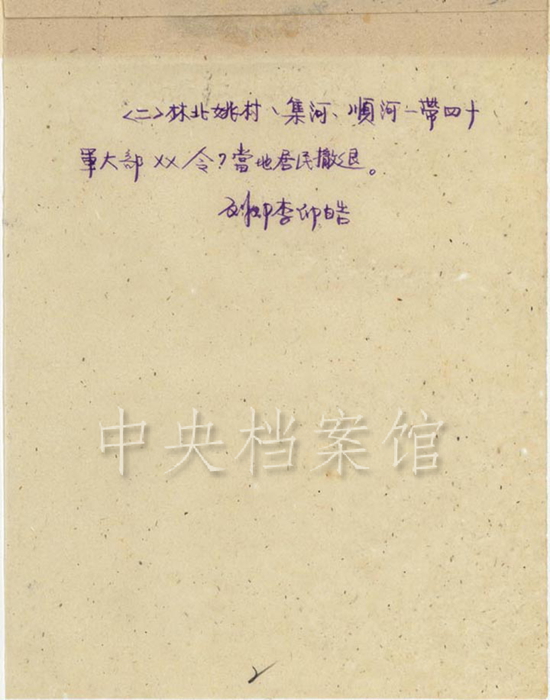 <二>林北姚村、集河、順河一帶四十
軍大部××令?當地居民撤退。
劉鄧李卬皓
中央档案馆
2